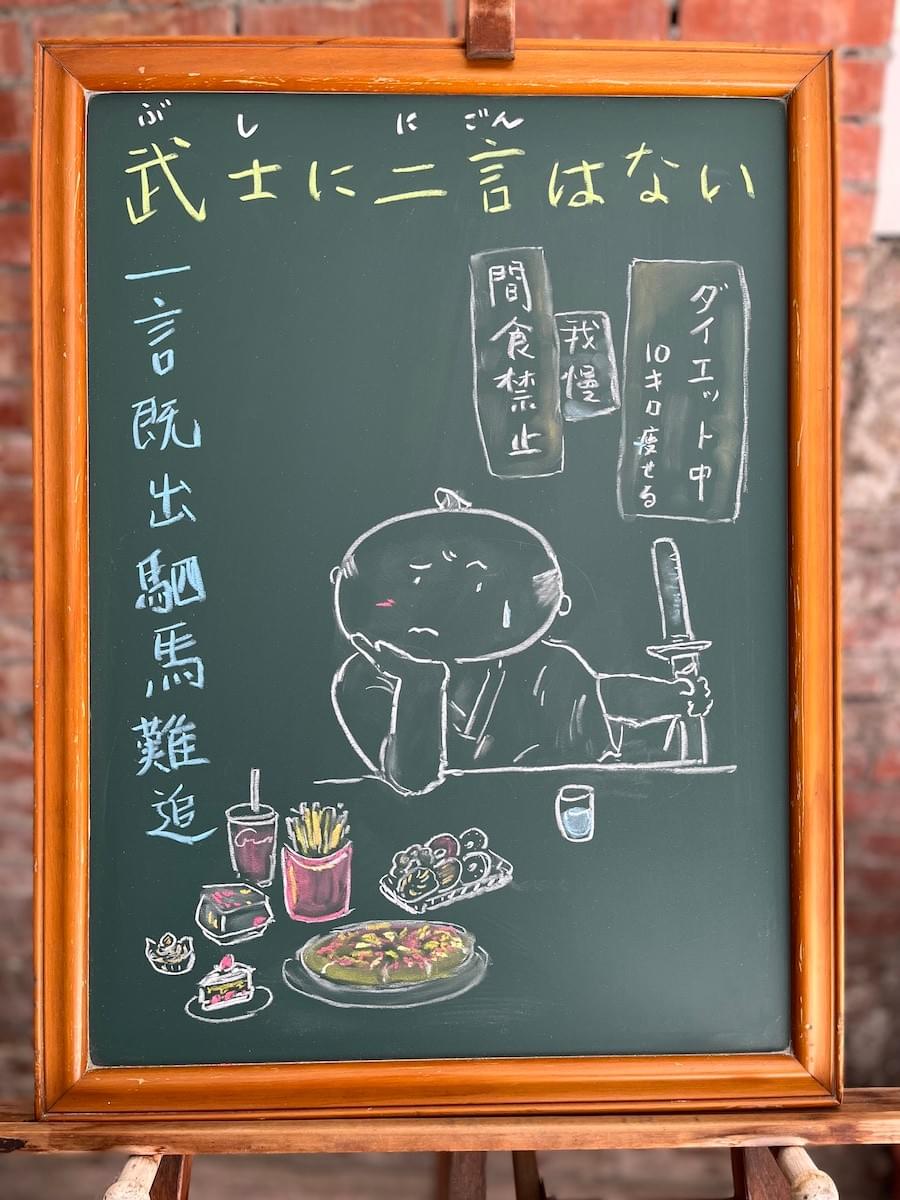 ぶ し に ごん
武士に二言はない
一言既出駟馬難追
ダイエット中
10キロ痩せる
我慢
間食禁止